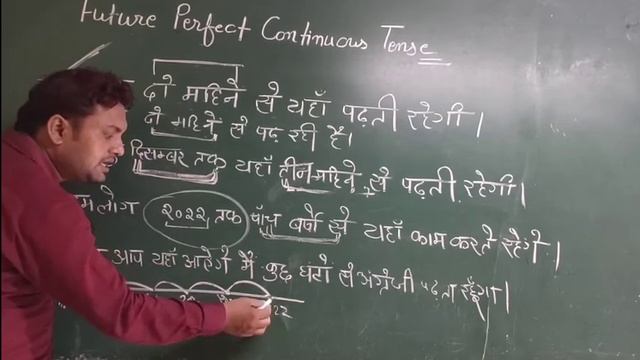 Future Perfect Continuous Tense
दो महिने से यहाँ पढ़ती रहेगी।
दो महिने से पढ़ रही है।
दिसम्बर तक यहाँ तीन महिने से पढ़ती रहेगी।
लोग २०२२ तक पाँच वर्षों से यहाँ काम करते रहेंगे।
आप यहाँ आएंगे मैं कुछ घंटों से अंग्रेजी पढ़ता रहूँगा।